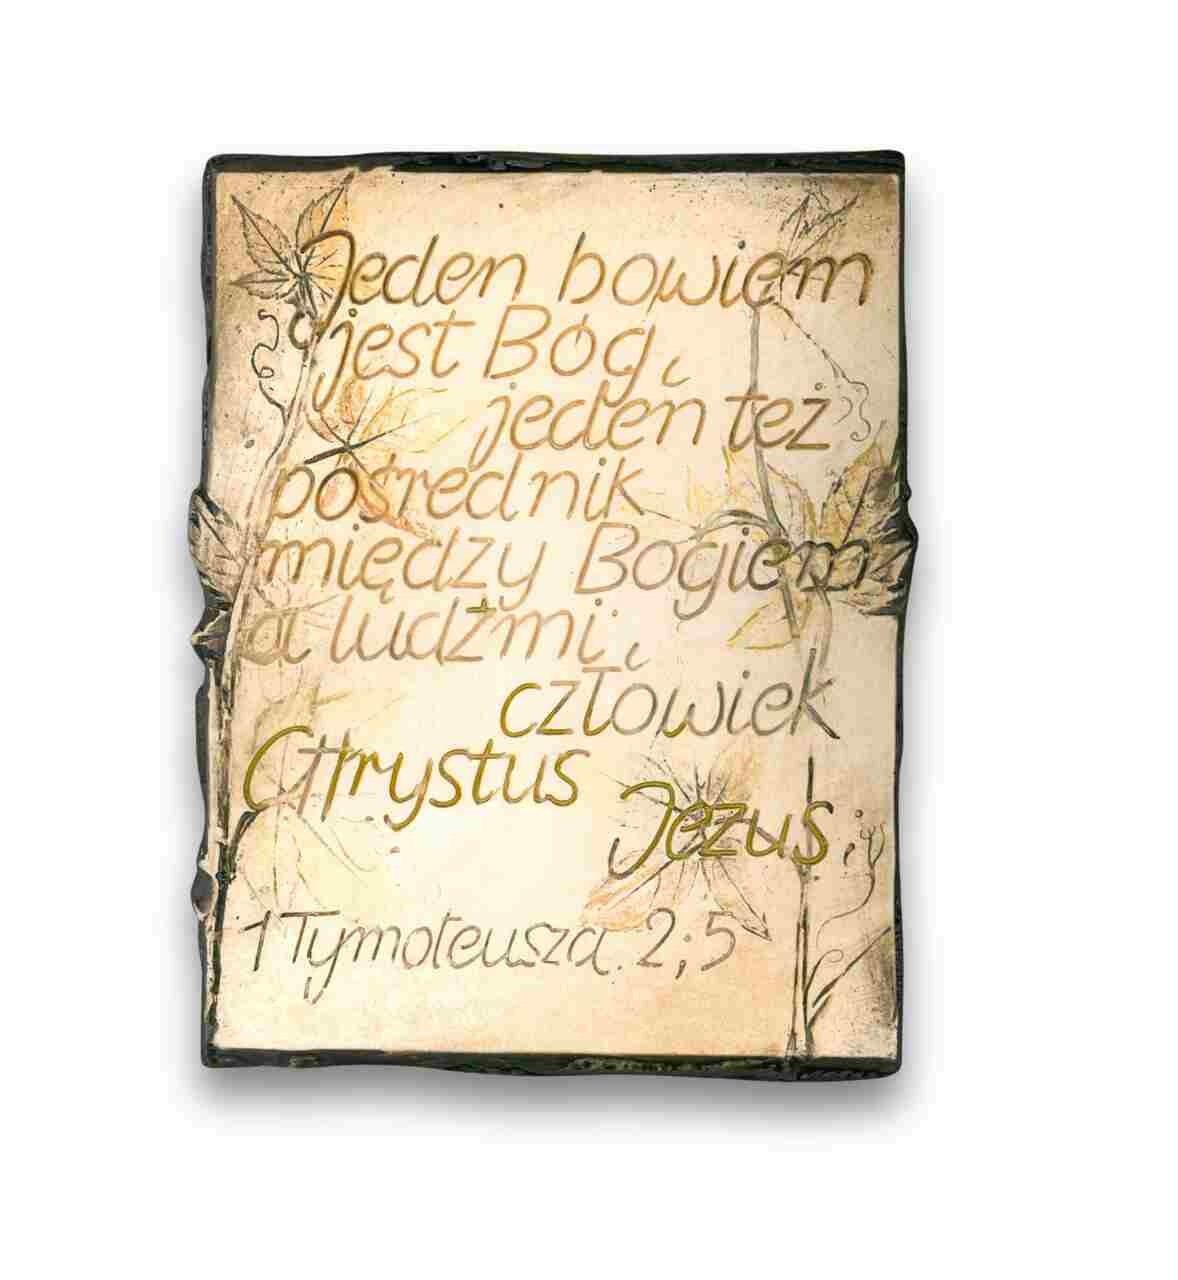 Jeden bowiem
jest Bóg,
jeden też
pośrednik
między Bogiem
a ludźmi,
człowiek
CHrystus
Jezus.
1 Tymoteusza 2;5